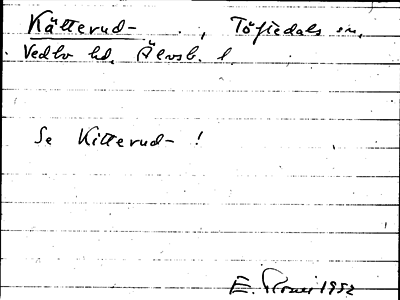 Kätterud- . , Töftedals sn,
Vedbo hd. Älvsb. l.
Se Kitterud- !
E. 1952